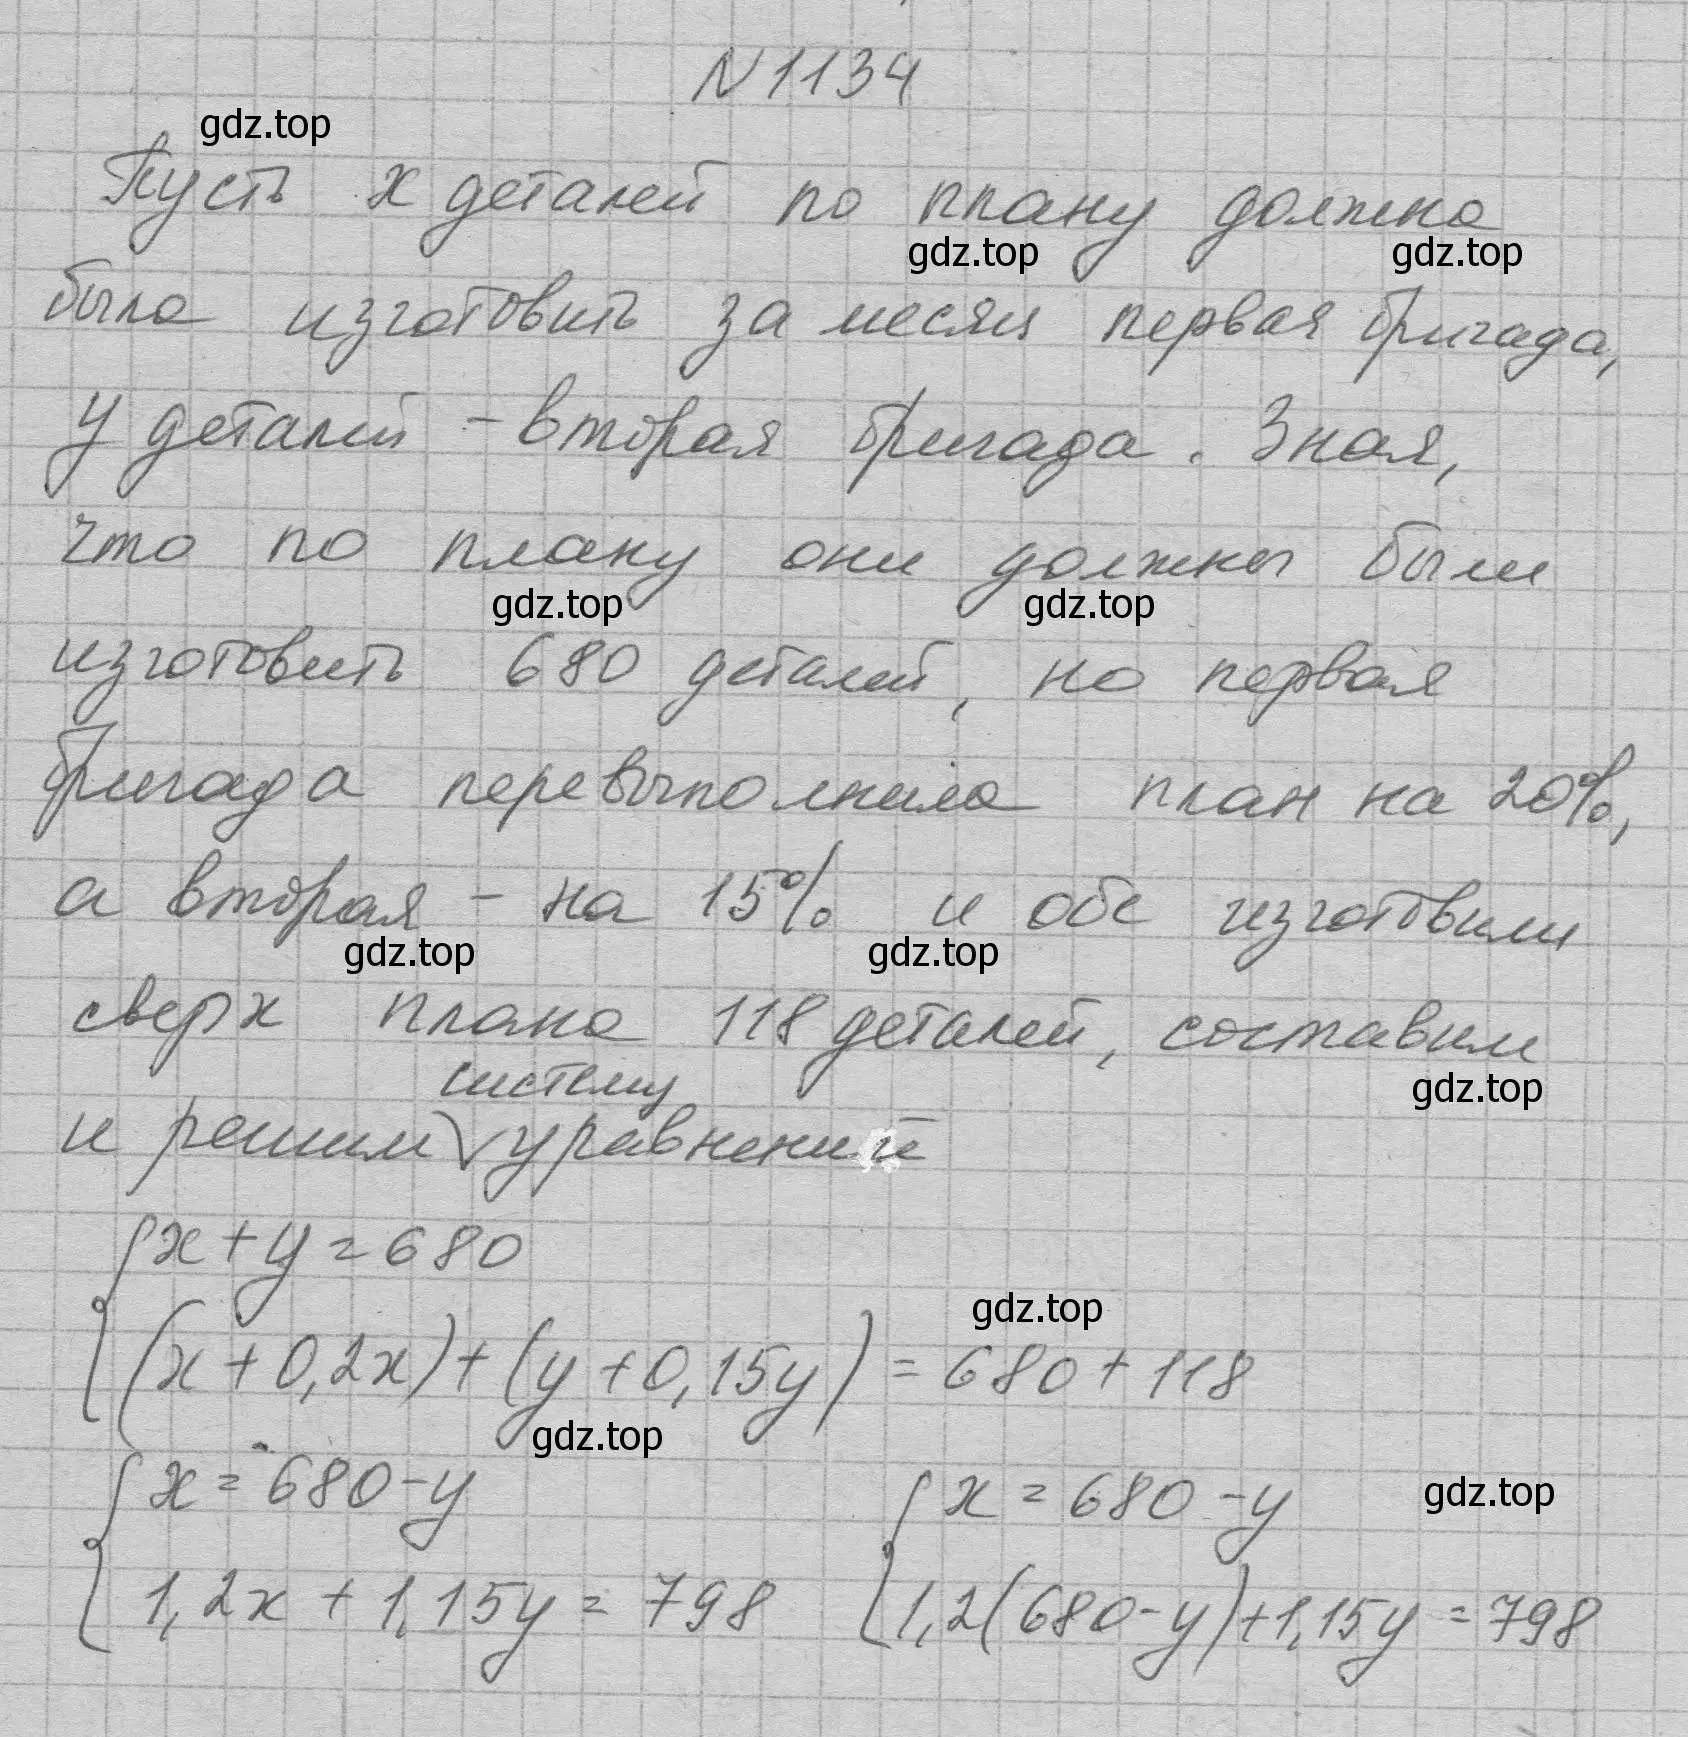 N 1134
gdz.top
Пусть x деталей по плану должна
gdz.top gdz.top
была изготовить за месяц первая бригада,
y деталей – вторая бригада. Зная,
что по плану они должны были
gdz.top gdz.top
изготовить 680 деталей, но первая
бригада перевыполнила план на 20%,
а вторая – на 15% и обе изготовили
gdz.top gdz.top
сверх плана 118 деталей, составим
gdz.top
систему
и решим √ уравнений
{ x + y = 680
gdz.top
(x + 0,2x) + (y + 0,15y) = 680 + 118
gdz.top
{ x = 680 – y { x = 680 – y
gdz.top
1,2x + 1,15y = 798 1,2(680 – y) + 1,15y = 798